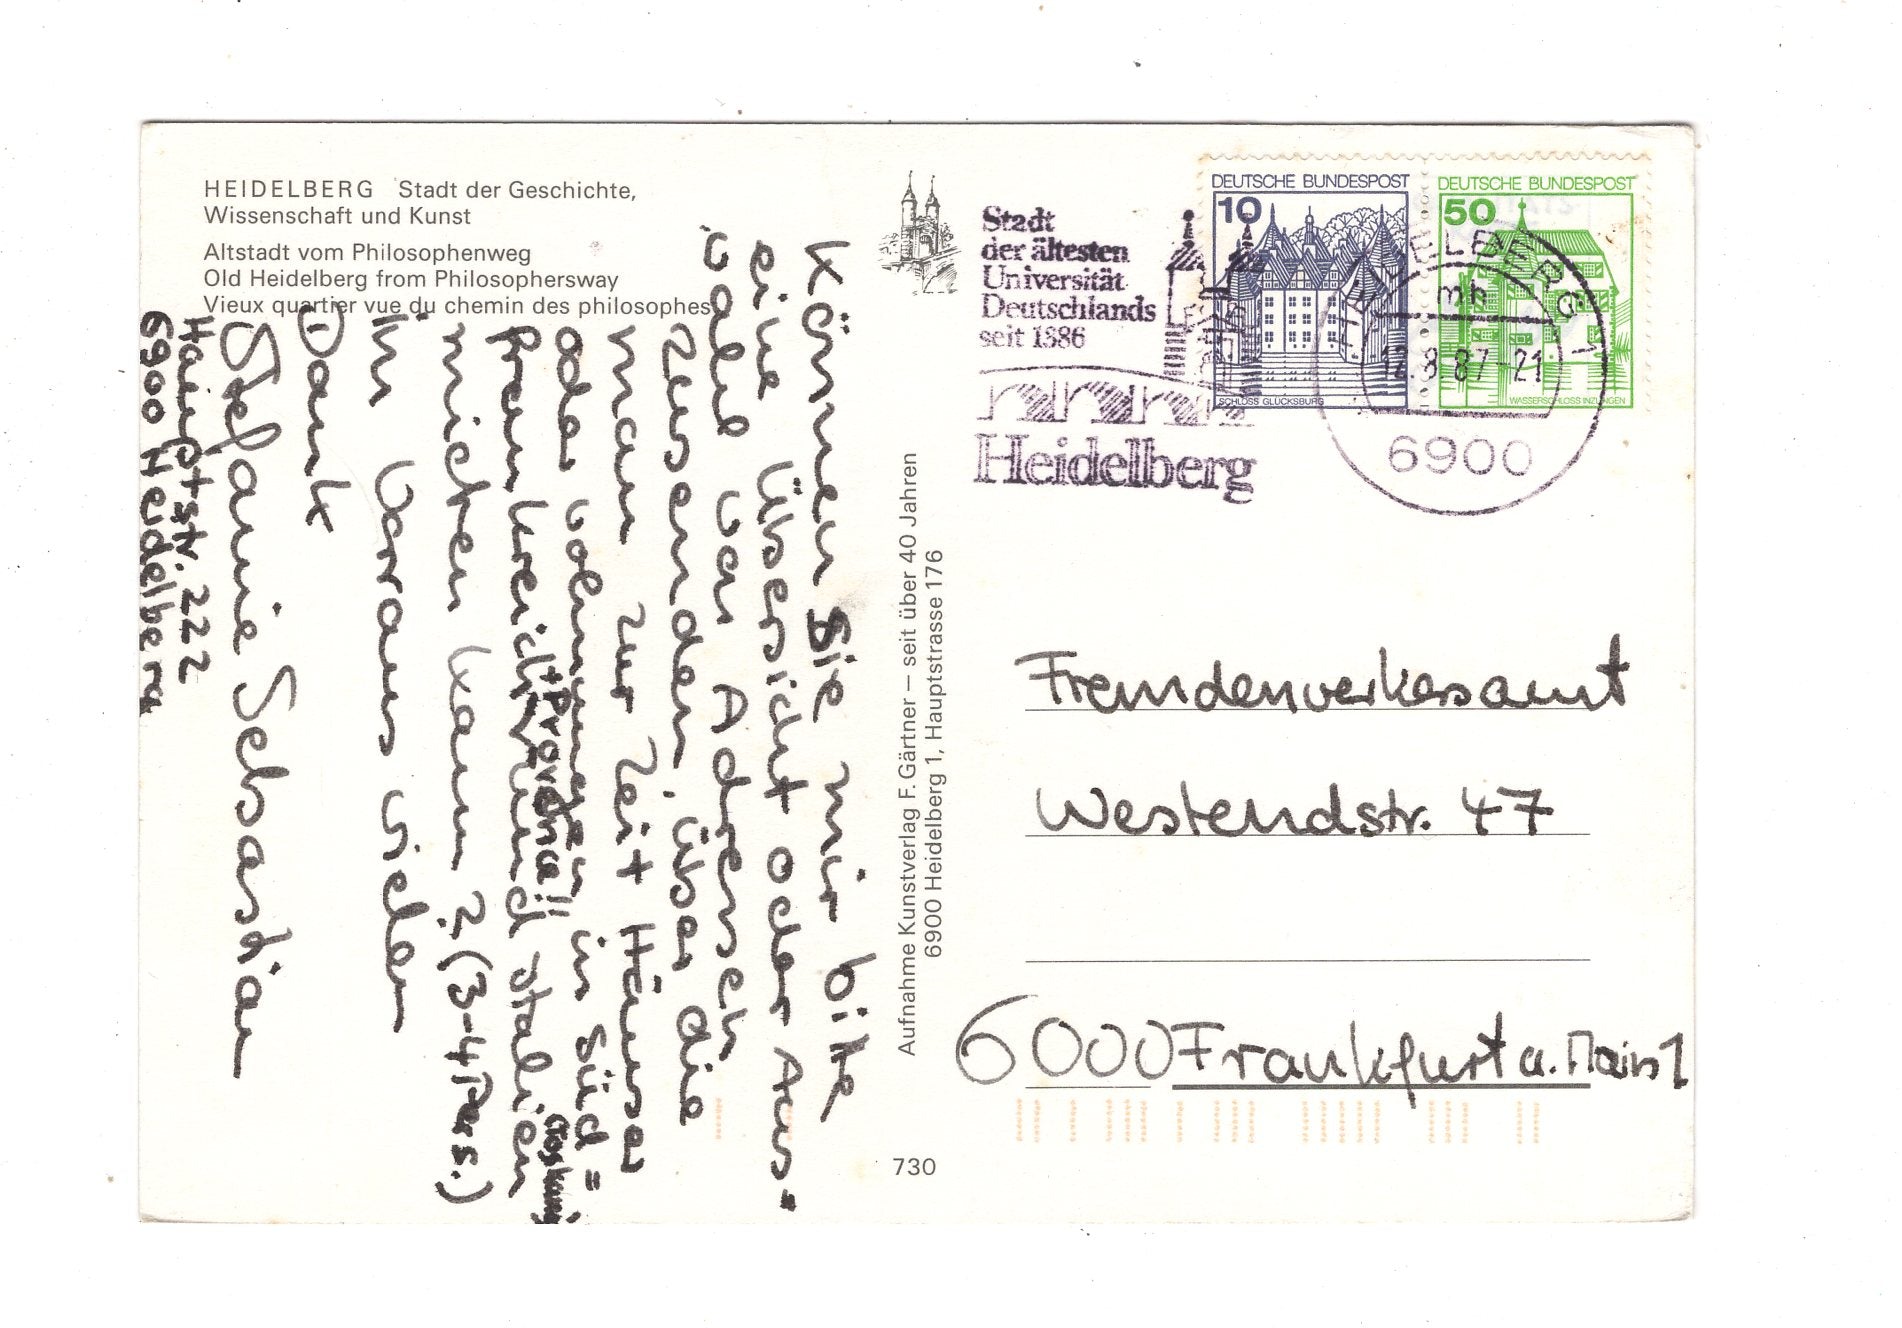 HEIDELBERG Stadt der Geschichte,
Wissenschaft und Kunst
Altstadt vom Philosophenweg
Old Heidelberg from Philosophersway
Vieux quartier vue du chemin des philosophes
Können Sie mir bitte
eine Übersicht oder Aus=
wahl von Adressen
zusenden, über die
man zur Zeit Häuser
oder Wohnungen in Süd=
Frankreich und Italien
(+Provence!!
(Toskana)
mieten kann? (3-4 Pers.)
Im Voraus vielen
Dank
Stefanie Sebastian
Hauptstr. 222
6900 Heidelberg
Aufnahme Kunstverlag F. Gärtner – seit über 40 Jahren
6900 Heidelberg 1, Hauptstrasse 176
730
Stadt
der ältesten
Universität
Deutschlands
seit 1386
Heidelberg
DEUTSCHE BUNDESPOST
10
SCHLOSS GLÜCKSBURG
DEUTSCHE BUNDESPOST
50
WASSERSCHLOSS INZLINGEN
HEIDELBERG 1
mh
12.8.87-21
6900
Fremdenverkesamt
Westendstr. 47
6000 Frankfurt a. Main 1